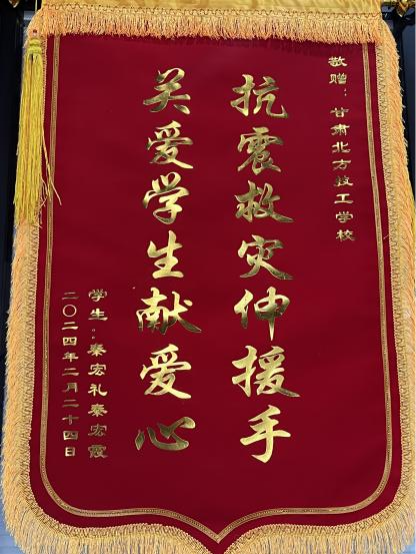 敬赠：甘肃北方技工学校
抗震救灾伸援手
关爱学生献爱心
学生：秦宏礼秦宏霞
二〇二四年二月二十四日